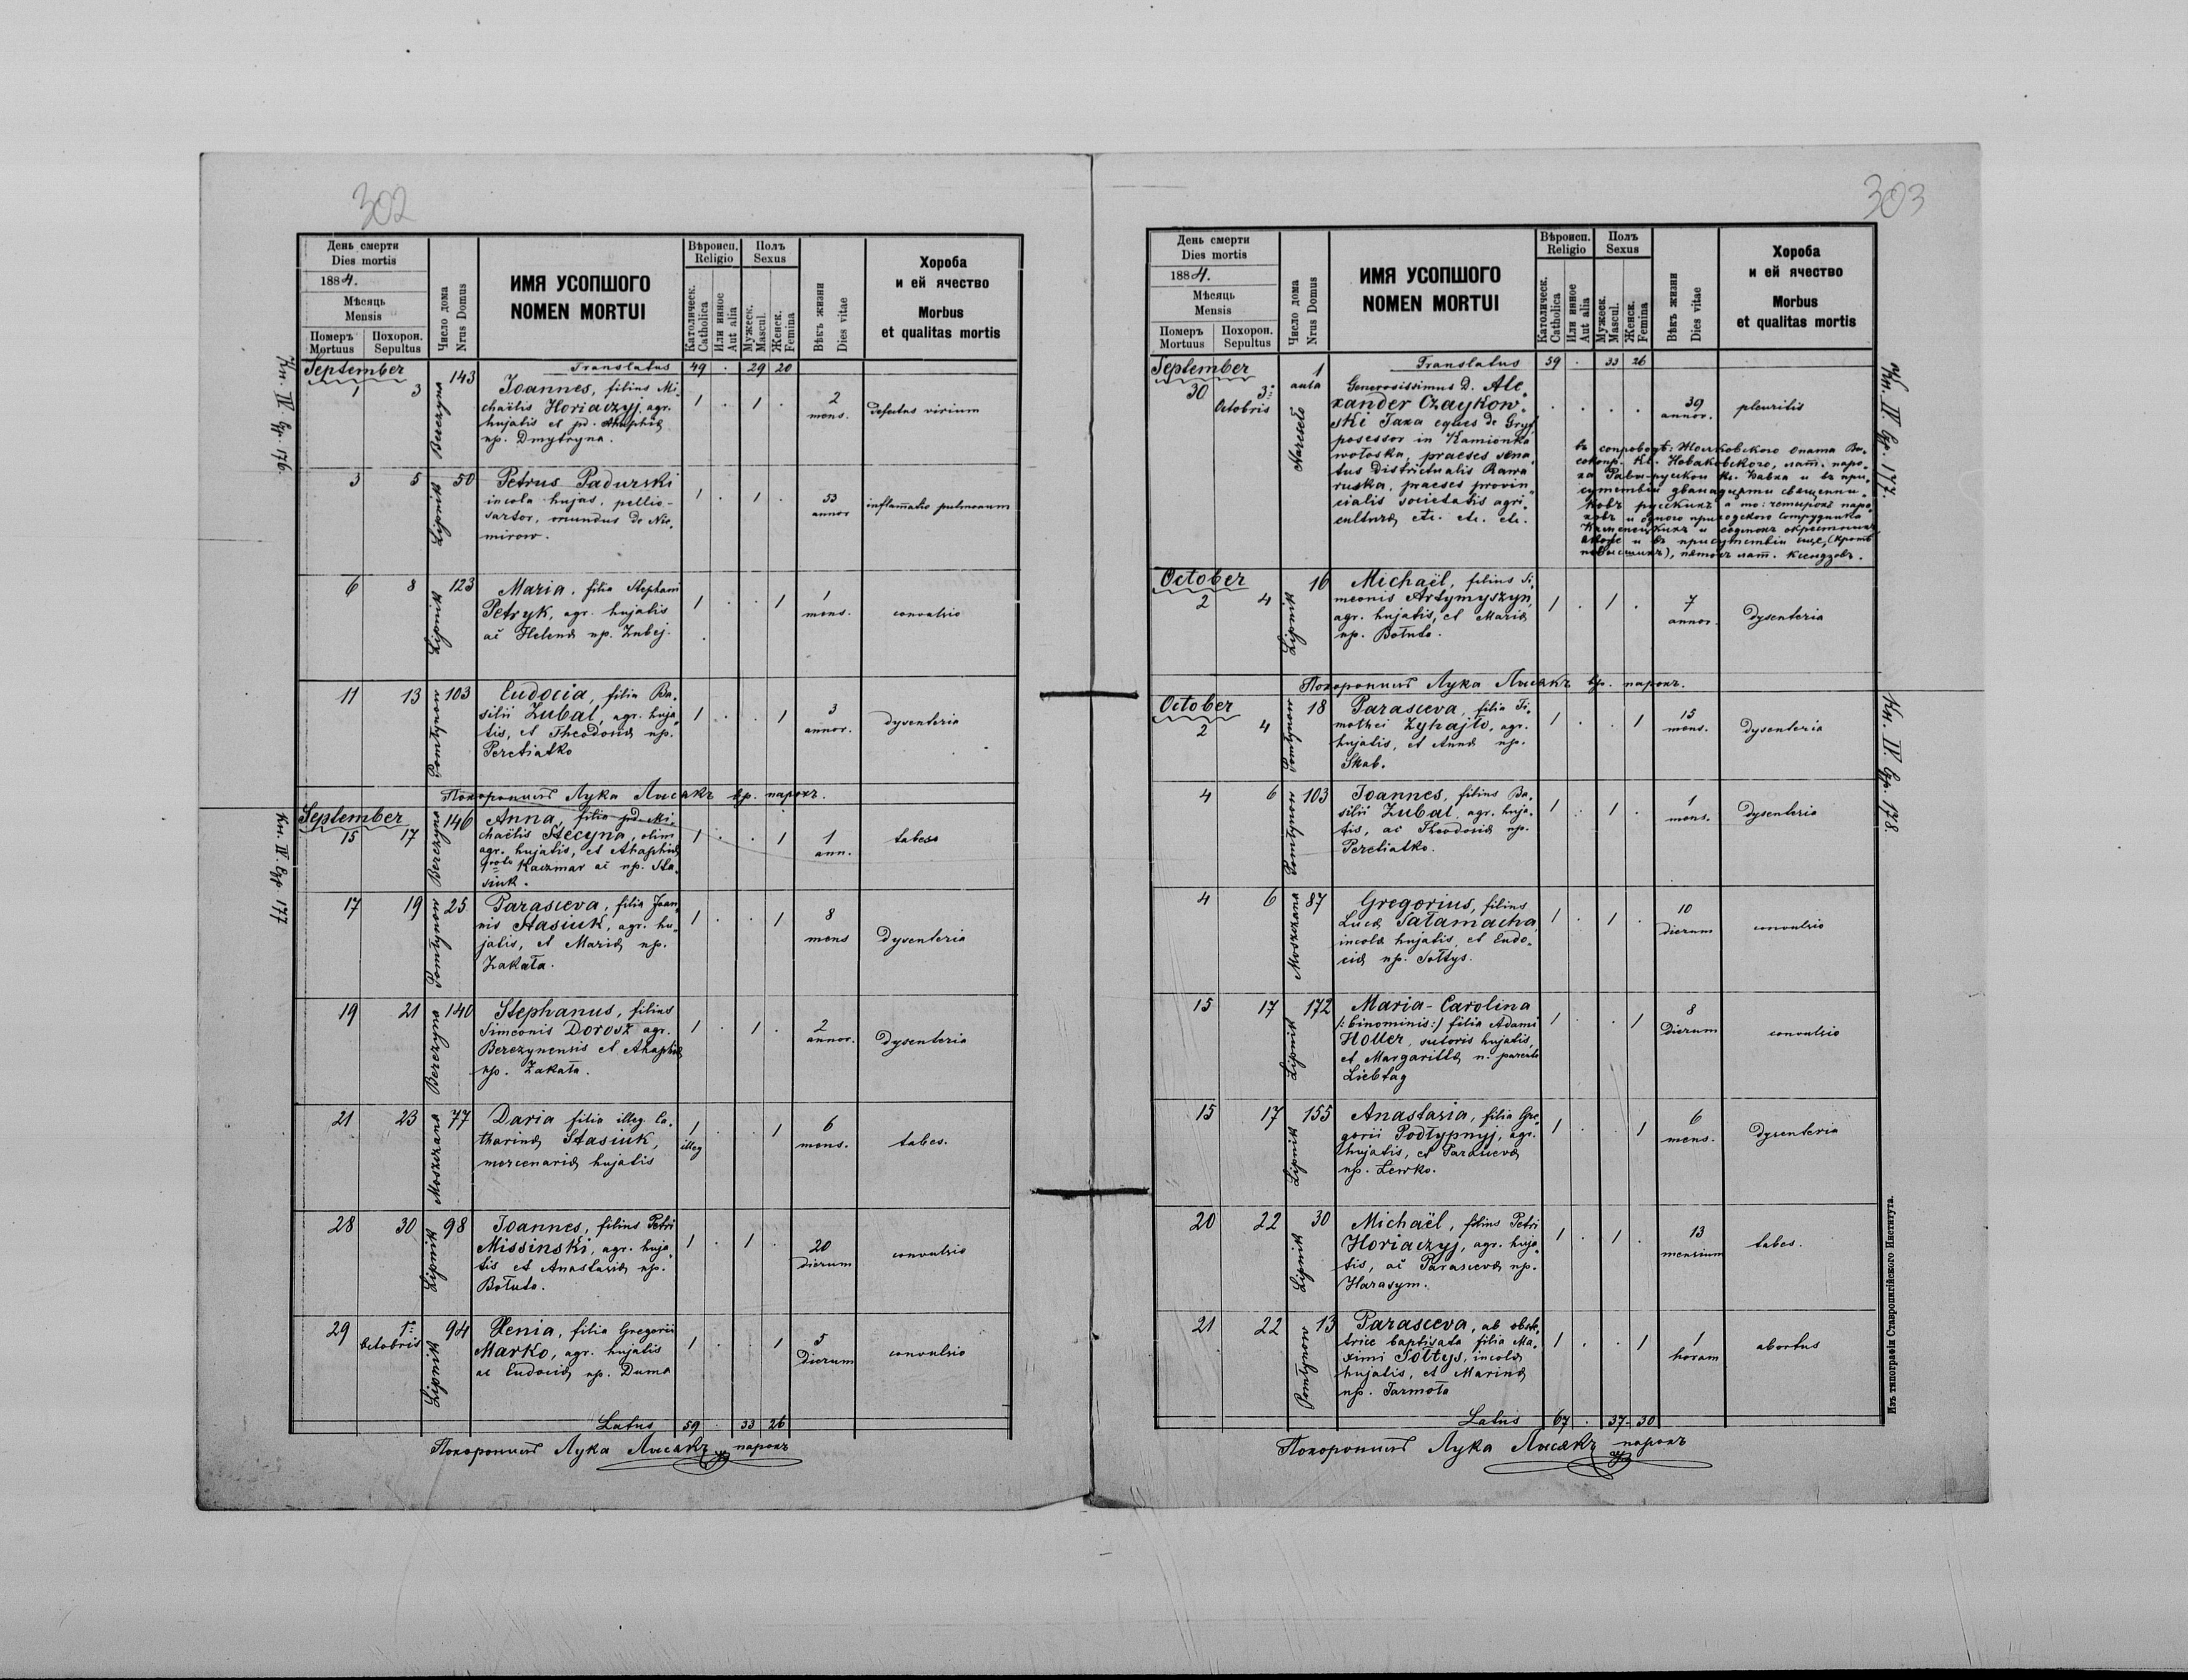 302
День смерти
Dies mortis
1884.
Мѣсяць
Mensis
Померъ
Mortuus
Похорон.
Sepultus
Число дома
Nrus Domus
ИМЯ УСОПШОГО
NOMEN MORTUI
Вѣроисп.
Religio
Католическ.
Catholica
Или инное
Aut alia
Полъ
Sexus
Мужеск.
Mascul.
Женск.
Femina
Вѣкъ жизни
Dies vitae
Хороба
и ей ячество
Morbus
et qualitas mortis
Кн. IV. стр. 176
September Translatus 49 . 29 20
1 3 Berezyna 143 Joannes, filius Mi-
chaëlis Horiaczyj, agr. 1 . 1 . 2 mens. defectus virium
hujatis et pd. Ahaphiæ
np. Dmytryna.
3 5 Lipnik 50 Petrus Padurski
incola hujas, pellio- 1 . 1 . 53 annor inflam̄atio pulmonum
sartor, oriundus de Nie-
mirow.
6 8 Lipnik 123 Maria, filia Stephani
Petryk, agr. hujatis 1 . . 1 1 mens. convulsio
ac Helenæ np. Zubej.
11 13 Pomłynow 103 Eudocia, filia Ba-
silii Zubal, agr. huja- 1 . . 1 3 annor. dysenteria
tis, et Theodoriæ np.
Peretiatko
Похоронилъ Лука Лисакъ гр. парохъ.
Кн. IV. стр. 177
September
15 17 Berezyna 146 Anna, filia pd. Mi-
chaëlis Stecyna, olim 1 . . 1 1 ann. tabes
agr. hujatis, et Ahaphiæ
Kaczmar ac np. Sta-
siuk.
17 19 Pomłynow 25 Parasceva, filia Joan-
nis Stasiuk, agr. hu- 1 . . 1 8 mens dysenteria
jatis, et Mariæ np.
Zakała.
19 21 Berezyna 140 Stephanus, filius
Simeonis Dorosz agr. 1 . 1 . 2 annor. dysenteria
Berezynensis et Ahaphiæ
np. Zakała.
21 23 Moszczana 77 Daria filia illeg. Ca-
tharinæ Stasiuk, 1 illeg . . 1 6 mens. tabes.
mercenariæ hujatis
28 30 Lipnik 98 Joannes, filius Petri
Missinski, agr. huja- 1 . 1 . 20 dierum convulsio
tis et Anastasiæ np.
Bołuto.
29 1º Octobris Lipnik 94 Xenia, filia Gregorii
Marko, agr. hujatis 1 . . 1 5 dierum convulsio
ac Eudociæ np. Duma
Latus 59 . 33 26
Похоронилъ Лука Лисакъ парохъ
303
День смерти
Dies mortis
1884.
Мѣсяць
Mensis
Померъ
Mortuus
Похорон.
Sepultus
Число дома
Nrus Domus
ИМЯ УСОПШОГО
NOMEN MORTUI
Вѣроисп.
Religio
Католическ.
Catholica
Или инное
Aut alia
Полъ
Sexus
Мужеск.
Mascul.
Женск.
Femina
Вѣкъ жизни
Dies vitae
Хороба
и ей ячество
Morbus
et qualitas mortis
Кн. IV. стр. 177.
September Translatus 59 . 33 26
30 3º Octobris 1 aula Generosissimus D. Ale-
xander Czaykow- . . . . 39 annor. pleuritis
ski Jaxa eques de Gryf,
possessor in Kamionka
wołoska, praeses sena-
tus Districtualis Rawa
ruska, praeses provin-
cialis societatis agri-
culturæ etc. etc. etc.
October
2 4 Lipnik 16 Michaël, filius Si-
meonis Artymyszyn, 1 . 1 . 7 annor. dysenteria
agr. hujatis, et Mariæ
np. Bołuto.
Похоронилъ Лука Лисакъ гр. парохъ.
Кн. IV. стр. 178.
October
2 4 Pomłynow 18 Parasceva, filia Ti-
mothei Zyhajło, agr. 1 . . 1 15 mens. dysenteria
hujatis, et Annæ np.
Skab.
4 6 Pomłynow 103 Joannes, filius Ba-
silii Zubal, agr. huja- 1 . 1 . 1 mens. dysenteria
tis, ac Theodosiæ np.
Peretiatko.
4 6 Moszczana 87 Gregorius, filius
Lucæ Sałamacha, 1 . 1 . 10 dierum convulsio
incolæ hujatis, et Eudo-
ciæ np. Sołtys.
15 17 Lipnik 172 Maria-Carolina
/: binominis :/ filia Adami 1 . . 1 8 dierum convulsio
Holler, sutoris hujatis,
et Margarithæ n. parente
Liebtag
15 17 Lipnik 155 Anastasia, filia Gre-
gorii Podłypnyj, agr. 1 . . 1 6 mens. dysenteria
hujatis, et Parascevæ
np. Lewko.
20 22 Lipnik 30 Michaël, filius Petri
Horiaczyj, agr. huja- 1 . 1 . 13 mensium tabes.
tis, ac Parascevæ np.
Harasym.
21 22 Pomłynow 13 Parasceva, ab obste-
trice baptisata filia Ma- 1 . . 1 1 horam abortus
ximi Sołtys, incolæ
hujatis, et Marinæ
np. Jarmoła
Latus 67 . 37 30
Похоронилъ Лука Лисакъ парохъ
Изъ типографіи Ставропигійского Института.